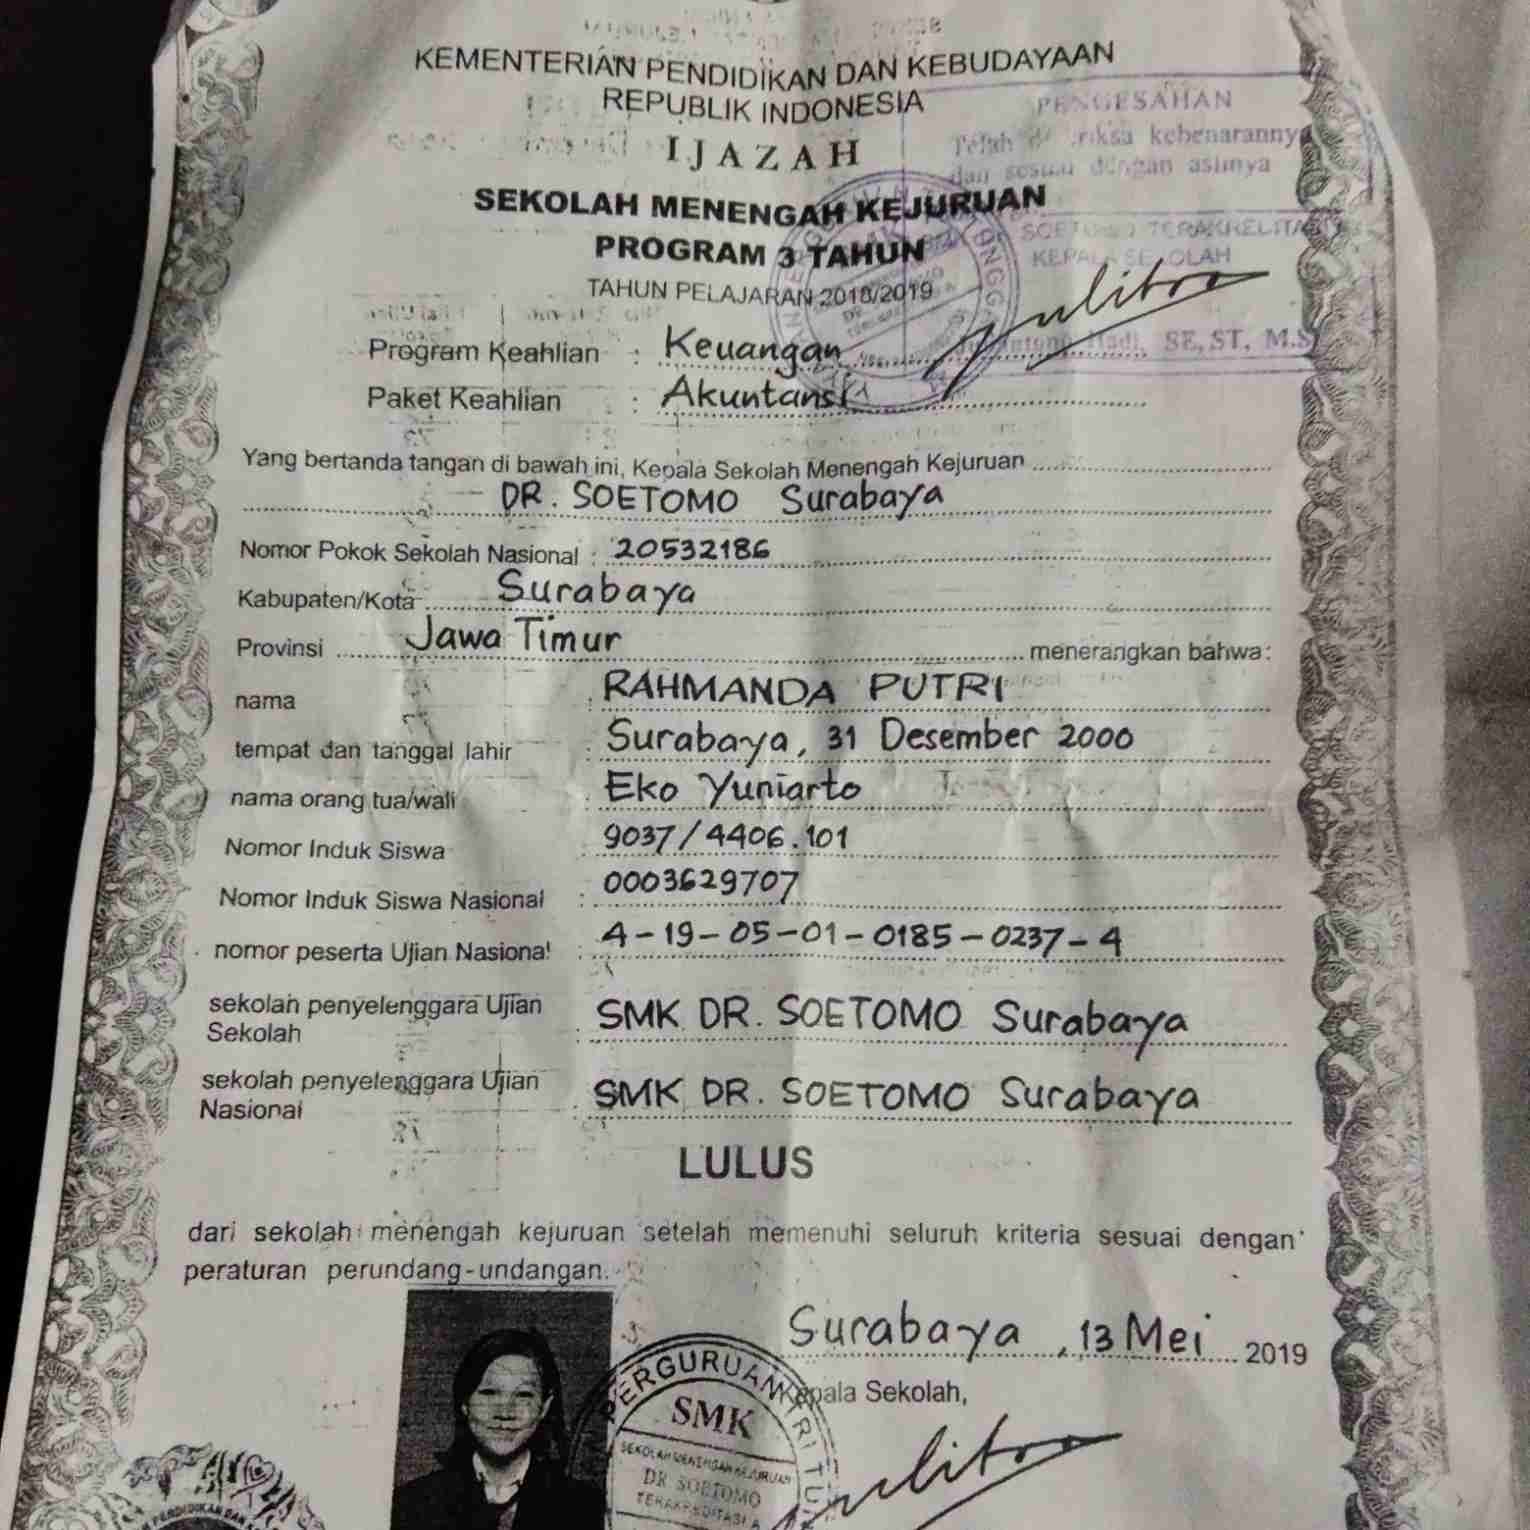 KEMENTERIAN PENDIDIKAN DAN KEBUDAYAAN
REPUBLIK INDONESIA
IJAZAH
SEKOLAH MENENGAH KEJURUAN
PROGRAM 3 TAHUN
TAHUN PELAJARAN 2018/2019
PENGESAHAN
Telah kebenarannya
dan sesuai dengan aslinya
SOETOMO TERAKREDITASI
KEPALA SEKOLAH
Hadi, SE, ST, M.S
Program Keahlian : Keuangan
Paket Keahlian : Akuntansi
Yang bertanda tangan di bawah ini, Kepala Sekolah Menengah Kejuruan
DR. SOETOMO Surabaya
Nomor Pokok Sekolah Nasional : 20532186
Kabupaten/Kota Surabaya
Provinsi Jawa Timur menerangkan bahwa:
nama : RAHMANDA PUTRI
tempat dan tanggal lahir : Surabaya, 31 Desember 2000
nama orang tua/wali : Eko Yuniarto
Nomor Induk Siswa : 9037/4406.101
Nomor Induk Siswa Nasional : 0003629707
nomor peserta Ujian Nasional : 4-19-05-01-0185-0237-4
sekolah penyelenggara Ujian
Sekolah : SMK DR. SOETOMO Surabaya
sekolah penyelenggara Ujian
Nasional : SMK DR. SOETOMO Surabaya
LULUS
dari sekolah menengah kejuruan setelah memenuhi seluruh kriteria sesuai dengan
peraturan perundang-undangan.
Surabaya, 13 Mei 2019
Kepala Sekolah,
PERGURUAN TRI TU
SMK
SEKOLAH MENENGAH KEJURUAN
DR SOETOMO
TERAKREDITASI A